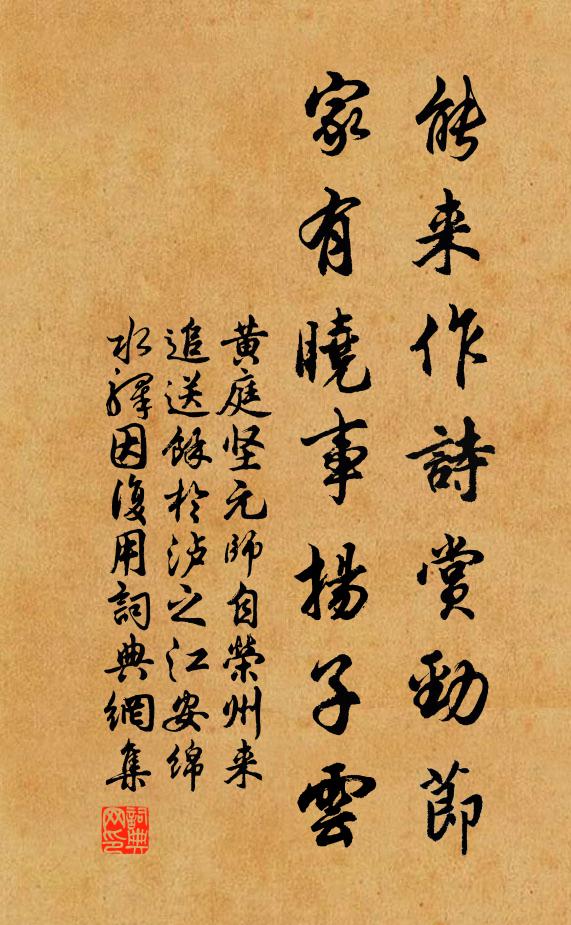 能来作詩賞勁節
家有曉事揚子雲
黄庭坚元師自榮州来
追送餘於泸之江安绵
水驛因復用詞典網集
詞典网印